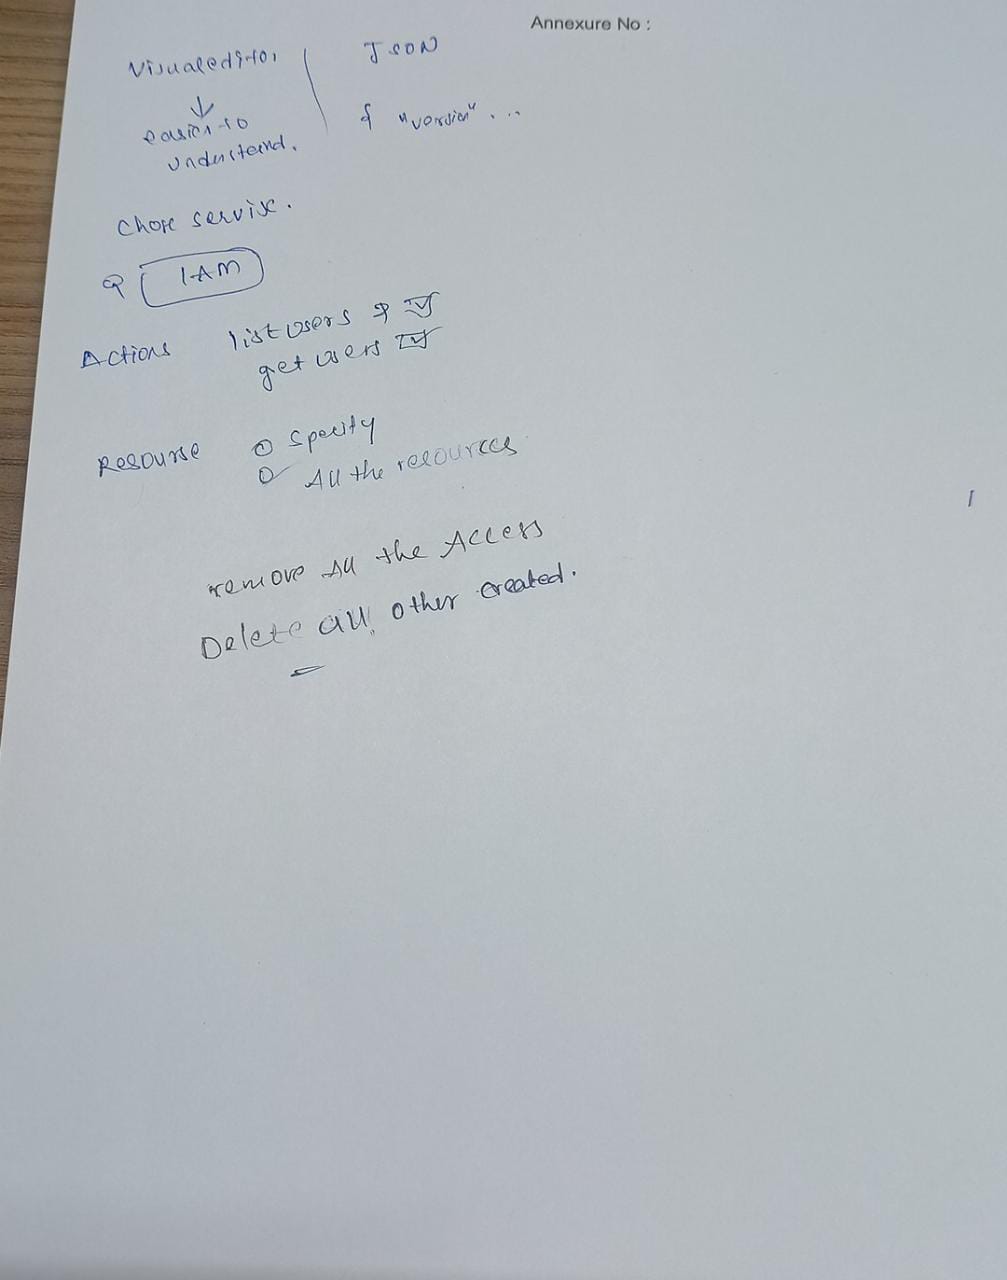 Annexure No :
Visualeditor
JSON
easier to
understand.
{ "version" ...
Chose servise.
IAM
Actions
list users &
get users
Resourse
Specity
All the resources
remove All the Access
Delete all, other created.